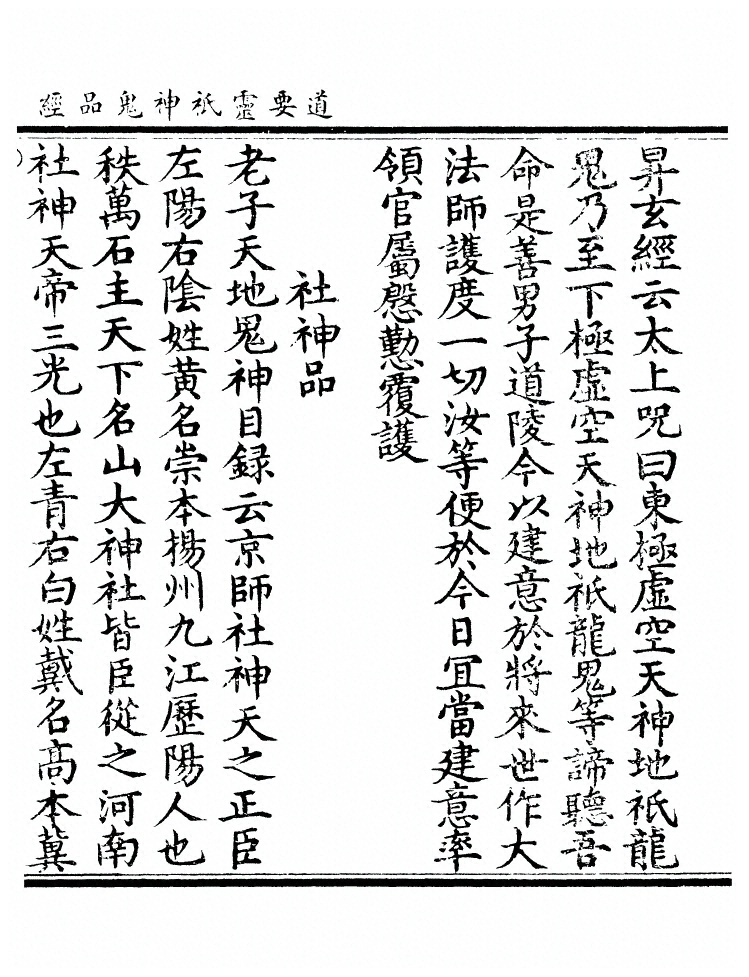 道要靈祇神鬼品經
昇玄經云太上咒曰東極虛空天神地祇龍
鬼乃至下極虛空天神地祇龍鬼等諦聽吾
命是善男子道陵今以建意於將來世作大
法師護度一切汝等便於今日宜當建意率
領官屬慇懃覆護
社神品
老子天地鬼神目録云京師社神天之正臣
左陽右陰姓黃名崇本揚州九江歷陽人也
秩萬石主天下名山大神社皆臣從之河南
社神天帝三光也左青右白姓戴名高本冀